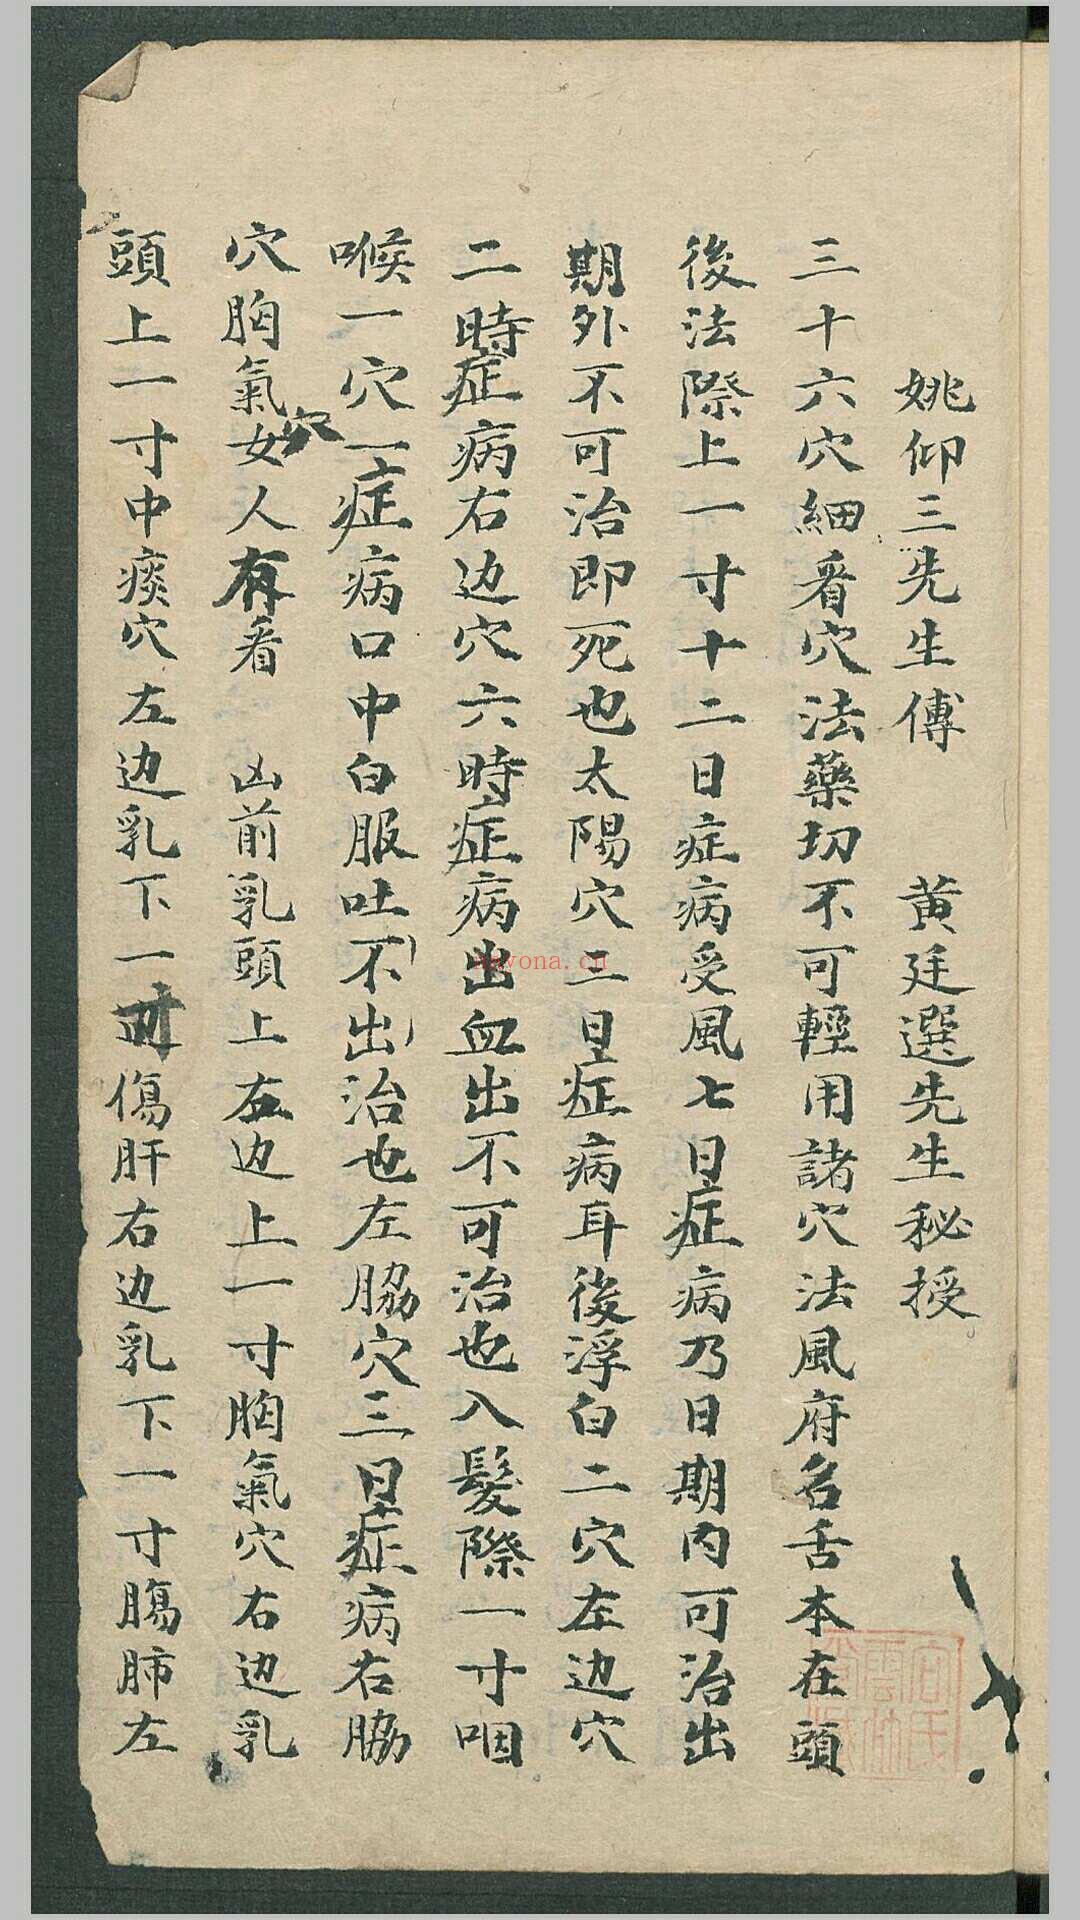 姚仰三先生傳　黄廷選先生秘授
三十六穴細看穴法藥切不可輕用諸穴法風府名舌本在頭
後法際上一寸十二日症病受風七日症病乃日期内可治出
期外不可治即死也太陽穴三日症病耳後浮白二穴左边穴
二時症病右边穴六時症病出血出不可治也入髮際一寸咽
喉一穴一症病口中白服吐不出治也左脇穴三日症病右脇
穴胸氣穴女人有看　凶前乳頭上右边上一寸胸氣穴右边乳
頭上一寸中痰穴左边乳下一寸傷肝右边乳下一寸腸肺左
nayona.cn